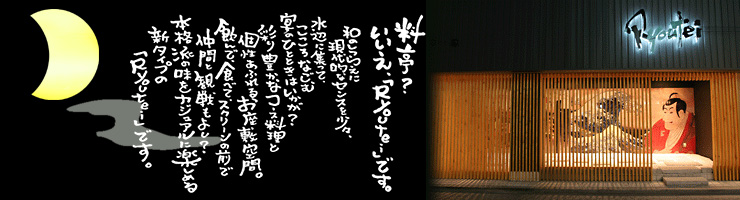 料亭？
いいえ、「Ryoutei」です。
和とらったに
現代的なセンスを少々、
水辺に集って、
こころなじむ
宴のひとときはいかが？
彩り豊かなコース料理と
個性あふれるお座敷空間。
飲んで、食べて、スクリーンの前で
仲間と観戦もよし！？
本格派の味をカジュアルに楽しめる
新タイプの
「Ryoutei」です。
Ryoutei